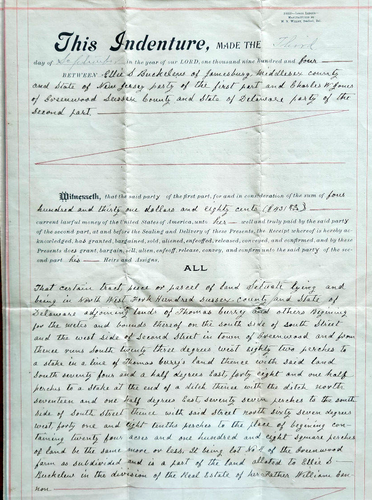 This Indenture, MADE THE Third
day of September in the year of our LORD, one thousand nine hundred and four
BETWEEN Ellie D Buckelew of Jamesburg Middlesex county
and State of New Jersey party of the first part and Charles W Jones
of Greenwood Sussex County and State of Delaware party of the
second part.
Witnesseth, that the said party of the first part, for and in consideration of the sum of four
hundred and thirty one dollars and eighty cents
current lawful money of the United States of America, unto her well and truly paid by the said party
of the second part, at and before the Sealing and Delivery of these Presents, the Receipt whereof is hereby ac-
knowledged, has granted, bargained, sold, aliened, enfeoffed, released, conveyed, and confirmed, and by these
Presents does grant, bargain, sell, alien, enfeoff, release, convey, and confirm unto the said party of the sec-
ond part, his Heirs and Assigns,
ALL
That certain tract, piece or parcel of land situate lying and
being in North West Fork Hundred Sussex county and State of
Delaware adjoining lands of Thomas Curry and others Begining
for the metes and bounds thereof on the south side of South Street
and the west side of Second Street in town of Greenwood and from
thence runs South twenty three degrees west eighty two perches to
a stake in a line of Thomas Currys land thence with said land
South seventy four and a half degrees East forty eight and one half
perches to a stake at the end of a ditch thence with the ditch north
seventeen and one half degrees East seventy seven perches to the south
side of South street thence with said Street north sixty seven degrees
west forty one and eight tenths perches to the place of begining con-
taining twenty four acres and one hundred and eight square perches
of land be the same more or less. It being lot No of the Greenwood
farm as subdivided and is a part of the land alloted to Ellie D
Buckelew in the division of the Real Estate of her Father William